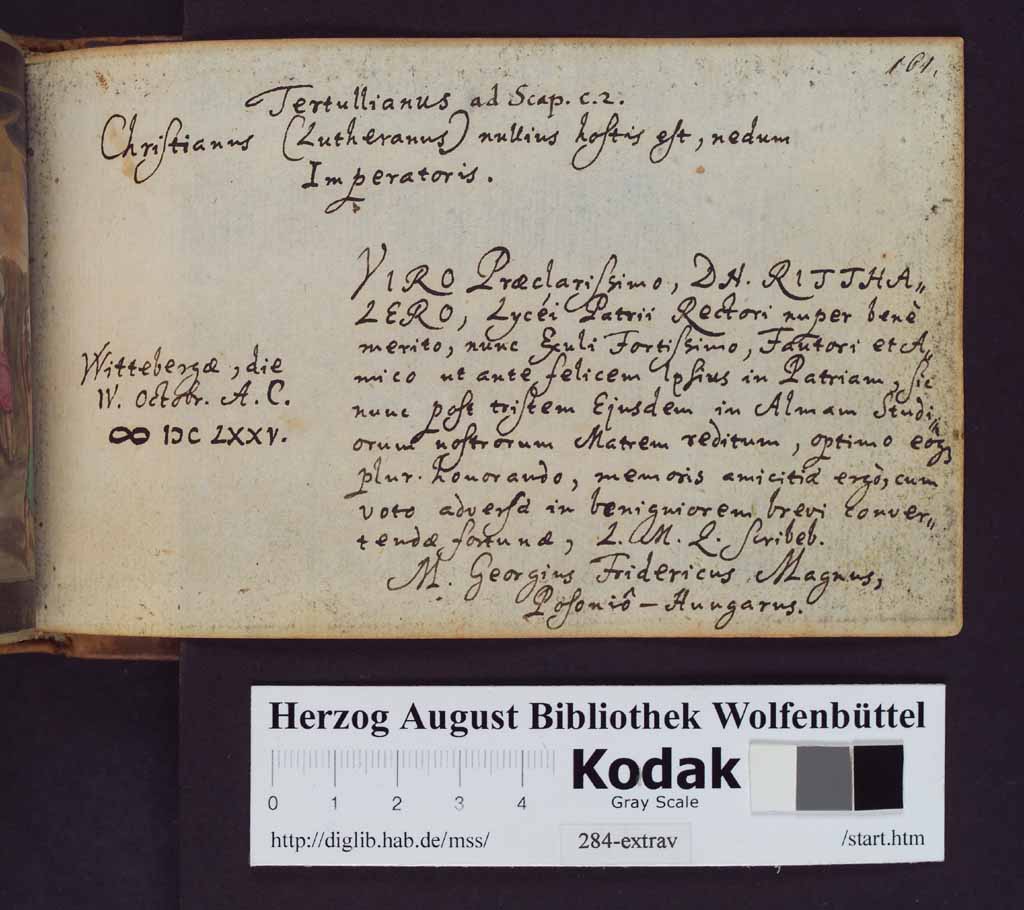 161.
Tertullianus ad Scap. c. 2.
Christianus (Lutheranus) nullius hostis est, nedum
Imperatoris.
VIRO Præclarissimo, DN. RITTHA„
LERO, Lycéi Patrii Rectori nuper benè
merito, nunc Exuli Fortissimo, Fautori et A„
mico ut ante felicem Ipsius in Patriam, sic
nunc post tristem Ejusdem in Almam Studi„
orum nostrorum Matrem reditum, optimo eoq3
plur. honorando, memoris amicitiæ ergò, cum
voto adversæ in benigniorem brevi conver„
tendæ fortunæ, L. M. Q. scribeb.
M. Georgius Fridericus Magnus,
Posoniô – Hungarus.
Wittebergæ, die
IV. Octobr. A. C.
∞ IↃC LXXV.
Herzog August Bibliothek Wolfenbüttel
0 1 2 3 4
Kodak
Gray Scale
http://diglib.hab.de/mss/ 284-extrav /start.htm